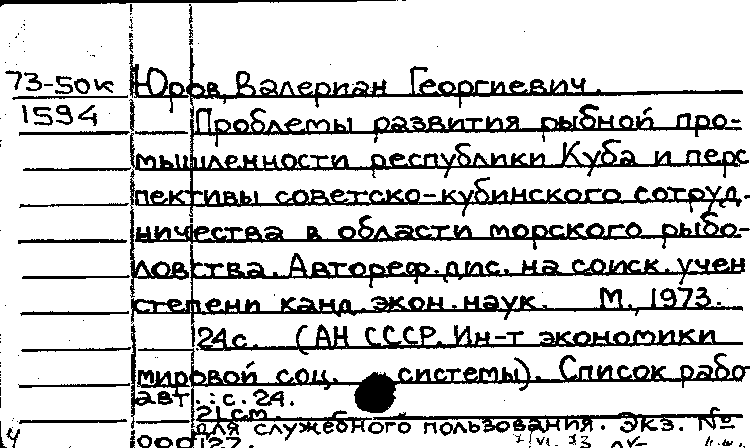 73-50к Юров, Валериан Георгиевич.
1594 Проблемы развития рыбной про-
мышленности республики Куба и перс
пективы советско-кубинского сотруд-
ничества в области морского рыбо-
ловства. Автореф. дис. на соиск. учен
степени канд. экон. наук. М., 1973.
24с. (АН СССР. Ин-т экономики
мировой соц. системы). Список рабо
авт.: с. 24.
21см.
для служебного пользования. Экз. №
000127.